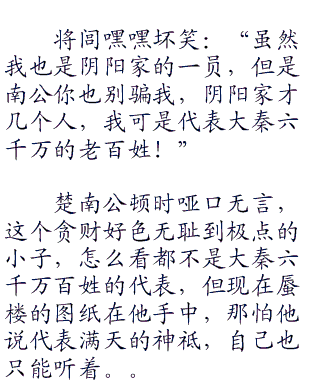 将闾嘿嘿坏笑：“虽然
我也是阴阳家的一员，但是
南公你也别骗我，阴阳家才
几个人，我可是代表大秦六
千万的老百姓！”
楚南公顿时哑口无言，
这个贪财好色无耻到极点的
小子，怎么看都不是大秦六
千万百姓的代表，但现在蜃
楼的图纸在他手中，那怕他
说代表满天的神祗，自己也
只能听着。。